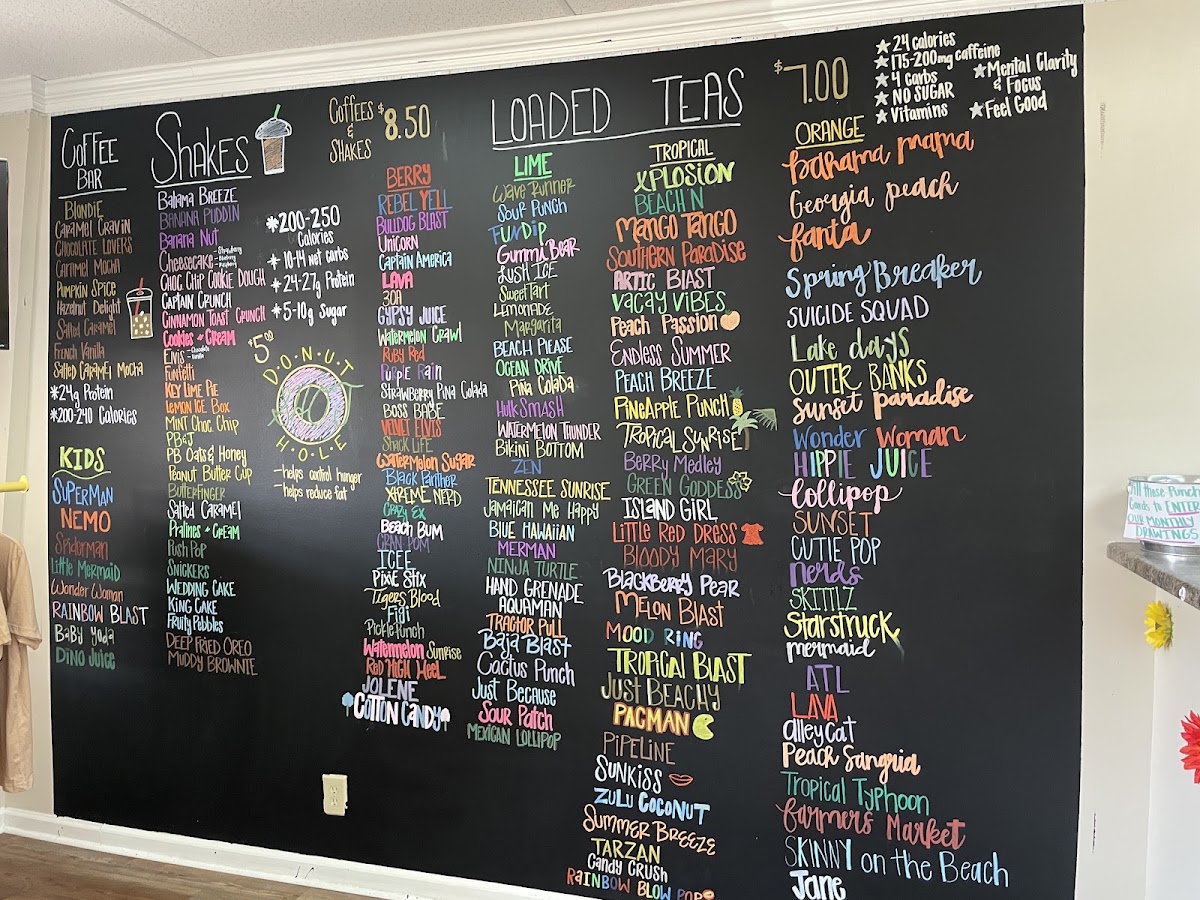 COFFEE
BAR
BLONDIE
CARAMEL CRAVIN
CHOCOLATE LOVERS
CARAMEL MOCHA
PUMPKIN SPICE
HAZELNUT DELIGHT
SALTED CARAMEL
FRENCH VANILLA
SALTED CARAMEL MOCHA
*24g Protein
*200-240 CALORIES
KIDS
SUPERMAN
NEMO
Spiderman
Little Mermaid
Wonder Woman
RAINBOW BLAST
BaBY Yoda
DINO JUICE
SHAKES
BAHAMA BREEZE
BANANA PUDDIN
BANANA NUT
CHEESECAKE - Strawberry
CHOC CHIP COOKIE DOUGH
CAPTAIN CRUNCH
CINNAMON TOAST CRUNCH
COOKIES + CREAM
ELVIS - Chocolate
Vanilla
FUNFETTI
KEY LIME PIE
LEMON ICE BOX
MINT CHOC CHIP
PB&J
PB OATS & HONEY
PEANUT BUTTER CUP
BUTTERFINGER
SALTED CARAMEL
PRALINES + CREAM
PUSH POP
SNICKERS
WEDDING CAKE
KING CAKE
FRUITY PEBBLES
DEEP FRIED OREO
MUDDY BROWNIE
*200-250
CALORIES
*10-14 net carbs
*24-27g Protein
*5-10g Sugar
$5.00
DONUT
HOLE
-helps control hunger
-helps reduce fat
COFFEES
&
SHAKES
$8.50
LOADED TEAS
$7.00
★24 calories
★175-200mg caffeine
★4 carbs
★NO SUGAR
★Vitamins
★Mental Clarity
& Focus
★Feel Good
BERRY
REBEL YELL
BULLDOG BLAST
UNICORN
CAPTAIN AMERICA
LAVA
30A
GYPSY JUICE
WATERMELON CRAWL
RUBY RED
PURPLE RAIN
STRAWBERRY PINA COLADA
BOSS BABE
VELVET ELVIS
SHACK LIFE
WATERMELON SUGAR
BLACK PANTHER
XTREME NERD
CRAZY EX
BEACH BUM
CRAN POM
ICEE
PIXIE STIX
TIGERS BLOOD
FIJI
PICKLE PUNCH
WATERMELON SUNRISE
RED HIGH HEEL
JOLENE
COTTON CANDY
LIME
WAVE RUNNER
SOUR PUNCH
FUNDIP
GUMMI BEAR
LUSH ICE
SWEETART
LEMONADE
MARGARITA
BEACH PLEASE
OCEAN DRIVE
PIÑA COLADA
HULK SMASH
WATERMELON THUNDER
BIKINI BOTTOM
ZEN
TENNESSEE SUNRISE
JAMAICAN ME HAPPY
BLUE HAWAIIAN
MERMAN
NINJA TURTLE
HAND GRENADE
AQUAMAN
TRACTOR PULL
BAJA BLAST
CACTUS PUNCH
JUST BECAUSE
SOUR PATCH
MEXICAN LOLLIPOP
TROPICAL
XPLOSION
BEACH'N
MANGO TANGO
SOUTHERN PARADISE
ARTIC BLAST
VACAY VIBES
PEACH PASSION
ENDLESS SUMMER
PEACH BREEZE
PINEAPPLE PUNCH
TROPICAL SUNRISE
BERRY MEDLEY
GREEN GODDESS
ISLAND GIRL
LITTLE RED DRESS
BLOODY MARY
BLACKBERRY PEAR
MELON BLAST
MOOD RING
TROPICAL BLAST
JUST BEACHY
PACMAN
PIPELINE
SUNKISS
ZULU COCONUT
SUMMER BREEZE
TARZAN
CANDY CRUSH
RAINBOW BLOW POP
ORANGE
bahama mama
Georgia peach
fanta
Spring Breaker
SUICIDE SQUAD
Lake days
OUTER BANKS
Sunset paradise
Wonder Woman
HIPPIE JUICE
Lollipop
SUNSET
CUTIE POP
nerds
SKITTLZ
Starstruck
mermaid
ATL
LAVA
alleyCat
Peach Sangria
Tropical Typhoon
farmers Market
SKINNY on the Beach
Jane
fill those Punch
Cards to ENTER
OUR MONTHLY
DRAWINGS